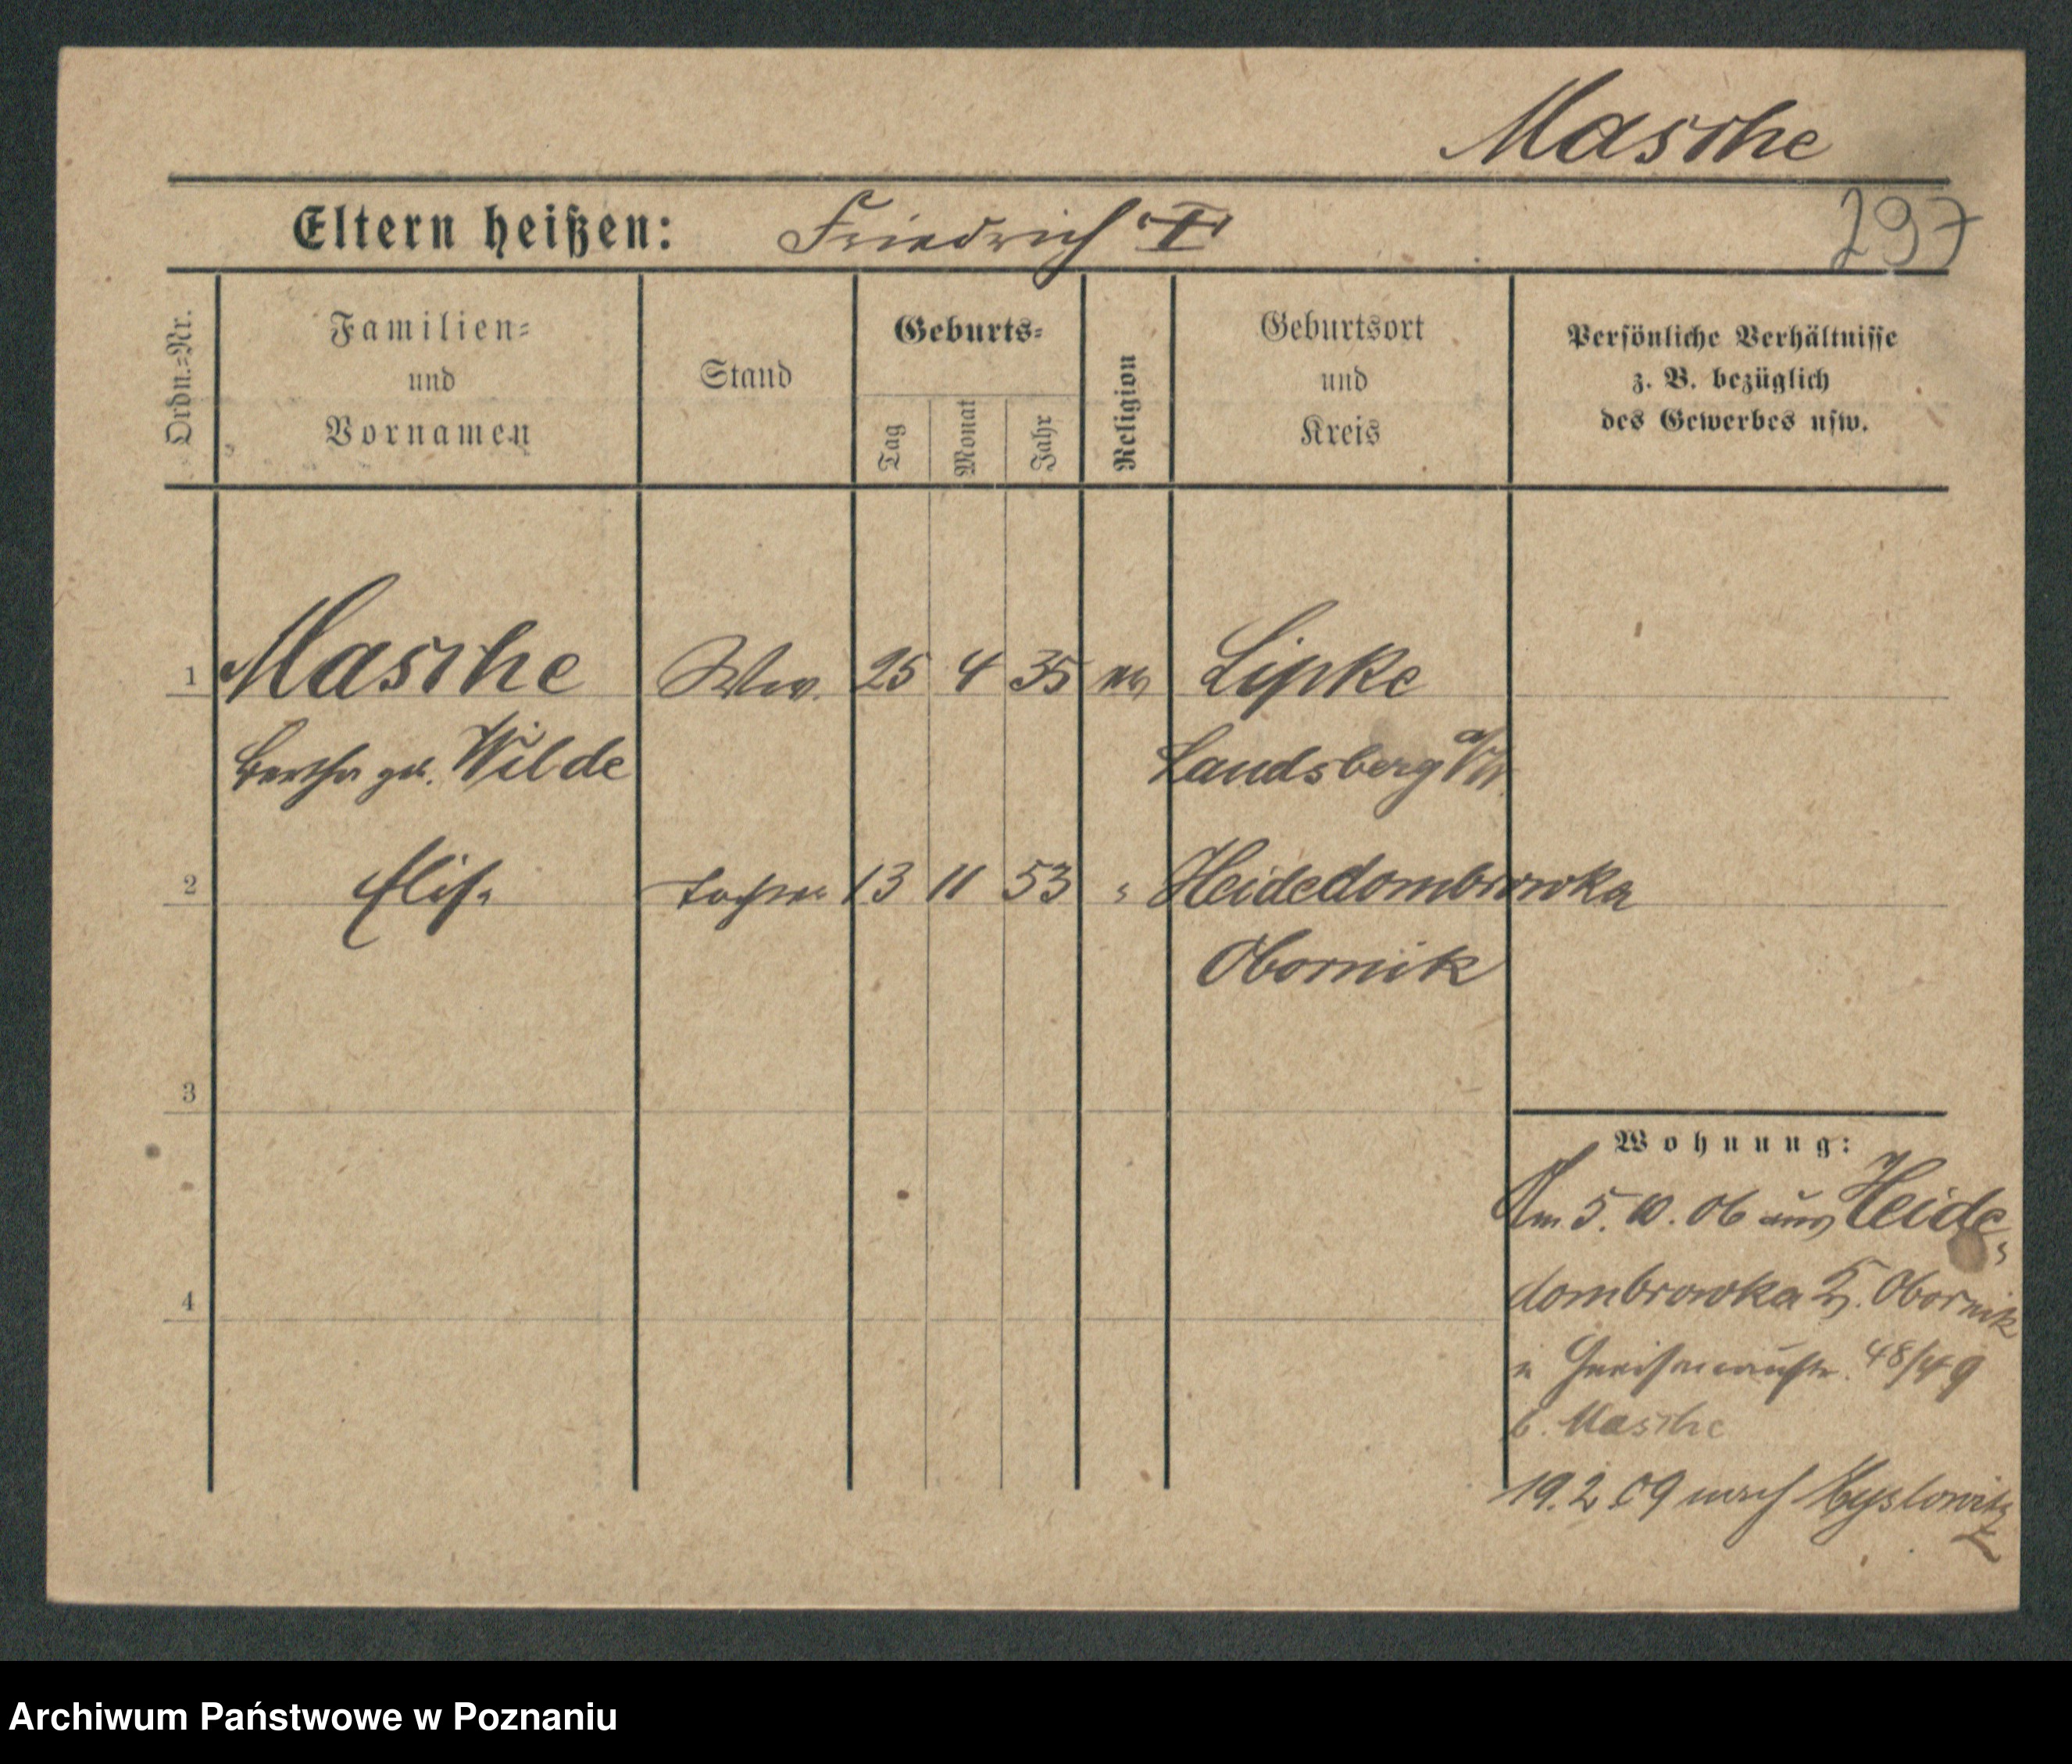 Masche
Eltern heißen: Friedrich "I"
297
Ordn.-Nr.
Familien-
und
Vornamen
Stand
Geburts-
Tag
Monat
Jahr
Religion
Geburtsort
und
Kreis
Persönliche Verhältnisse
z. B. bezüglich
des Gewerbes usw.
1 Masche Ww. 25 4 35 ev Lipke
Bertha geb. Wilde Landsberg a/W.
2 Elise Tochter 13 11 53 " Heidedombrowka
Obornik
3
Wohnung:
Am 5. 10. 06 aus Heide-
4 dombrowka Kr. Obornik
n Gneisenaustr. 48/49
b. Masche
19.2.09 nach Myslowitz
Archiwum Państwowe w Poznaniu